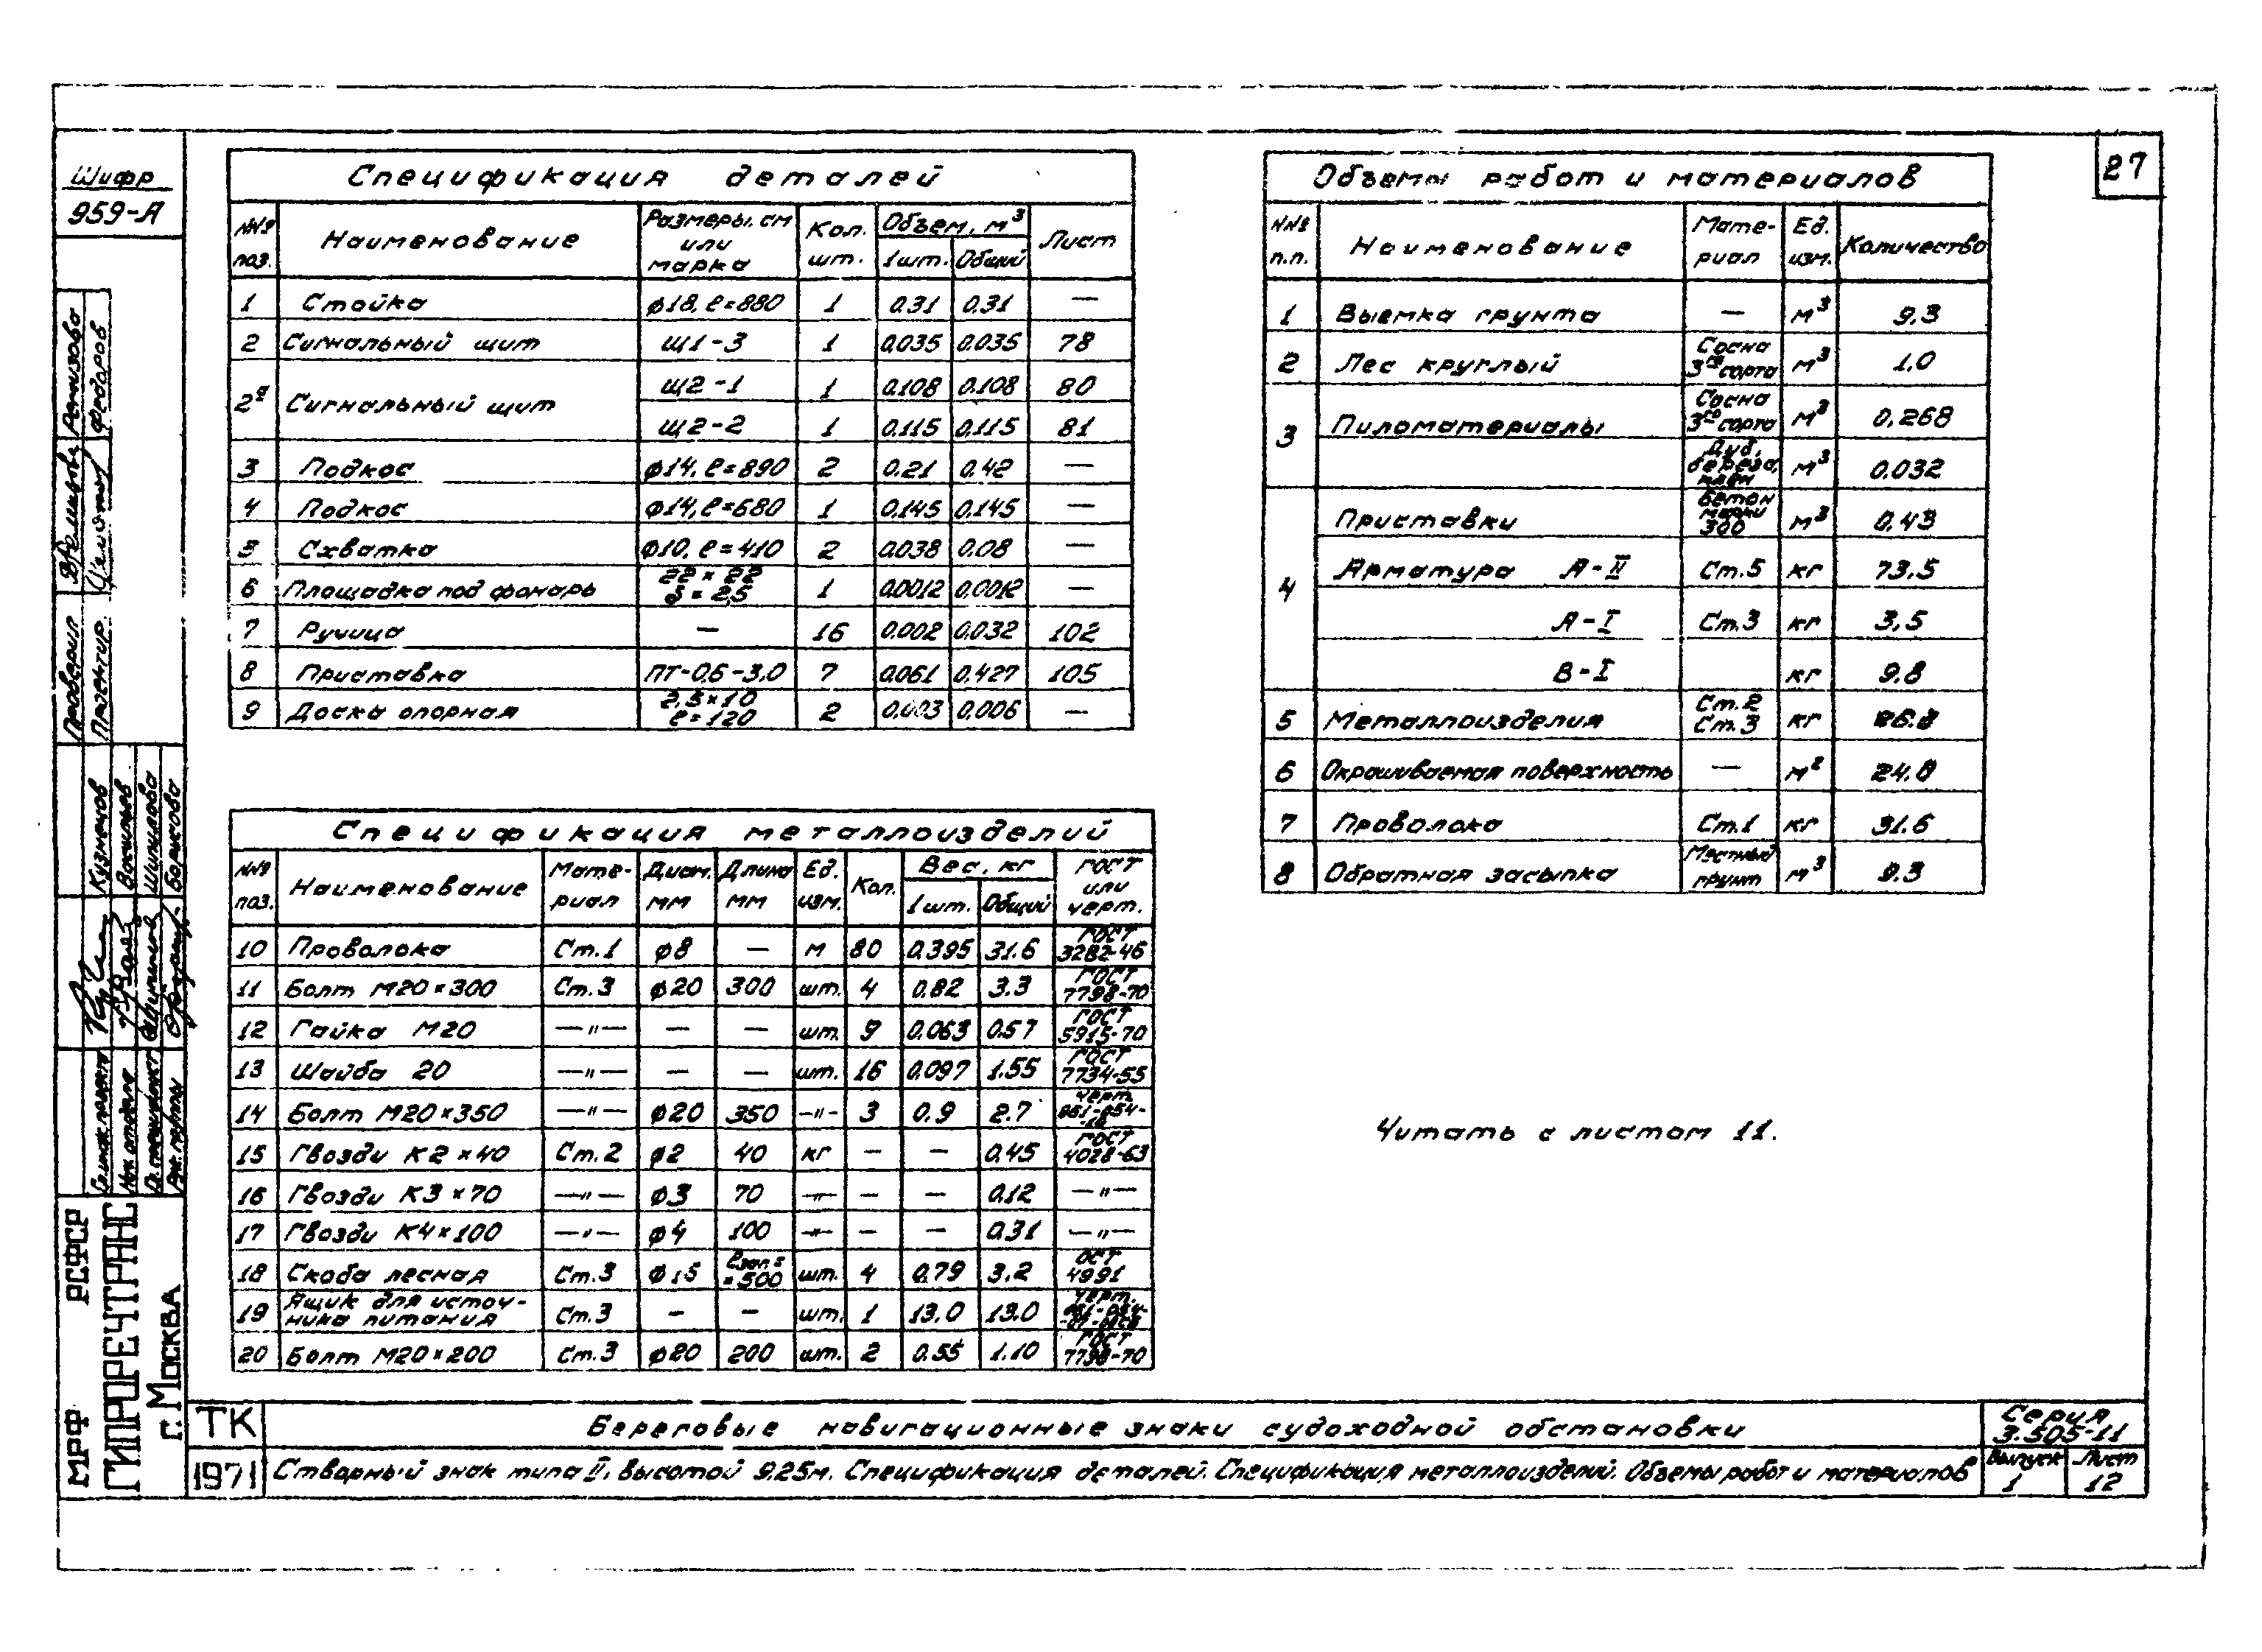 27
Шифр
959-А
Спецификация деталей
№№ поз. Наименование Размеры, см или марка Кол. шт. Объем, м³ 1шт. Общий Лист
1 Стойка ø18, ℓ=880 1 0.31 0.31 —
2 Сигнальный щит Щ1-3 1 0.035 0.035 78
2ª Сигнальный щит Щ2-1 1 0.108 0.108 80
Щ2-2 1 0.115 0.115 81
3 Подкос ø14, ℓ=890 2 0.21 0.42 —
4 Подкос ø14, ℓ=680 1 0.145 0.145 —
5 Схватка ø10, ℓ=410 2 0.038 0.08 —
6 Площадка под фонарь 22×22 δ=2,5 1 0.0012 0.0012 —
7 Ручица — 16 0.002 0.032 102
8 Приставка ПТ-0,6-3,0 7 0.061 0.427 105
9 Доска опорная 2,5×10 ℓ=120 2 0.003 0.006 —
Спецификация металлоизделий
№№ поз. Наименование Мате-риал Диам. мм Длина мм Ед. изм. Кол. Вес, кг 1шт. Общий ГОСТ или черт.
10 Проволока Ст.1 ø8 — м 80 0.395 31.6 ГОСТ 3282-46
11 Болт М20×300 Ст.3 ø20 300 шт. 4 0.82 3.3 ГОСТ 7798-70
12 Гайка М20 —"— — — шт. 9 0.063 0.57 ГОСТ 5915-70
13 Шайба 20 —"— — — шт. 16 0.097 1.55 ГОСТ 7734-55
14 Болт М20×350 —"— ø20 350 —"— 3 0.9 2.7 черт.
15 Гвозди К2×40 Ст.2 ø2 40 кг — — 0.45 ГОСТ 4028-63
16 Гвозди К3×70 —"— ø3 70 —"— — — 0.12 —"—
17 Гвозди К4×100 —"— ø4 100 —"— — — 0.31 —"—
18 Скоба лесная Ст.3 ø15 =500 шт. 4 0.79 3.2 ОСТ 4991
19 Ящик для источ-ника питания Ст.3 — — шт. 1 13.0 13.0 черт.
20 Болт М20×200 Ст.3 ø20 200 шт. 2 0.55 1.10 ГОСТ 7798-70
Объемы работ и материалов
№№ п.п. Наименование Мате-риал Ед. изм. Количество
1 Выемка грунта — м³ 9.3
2 Лес круглый Сосна 3го сорта м³ 1.0
3 Пиломатериалы Сосна 3го сорта м³ 0,268
Дуб, береза, клен м³ 0.032
4 Приставки Бетон марки 300 м³ 0.43
Арматура А-II Ст.5 кг 73.5
А-I Ст.3 кг 3,5
В-I кг 9.8
5 Металлоизделия Ст.2 Ст.3 кг
6 Окрашиваемая поверхность — м² 24.8
7 Проволока Ст.1 кг 31.6
8 Обратная засыпка Местный грунт м³ 9.3
Читать с листом 11.
Проверил Ремизова
Проектир. Федоров
Кузнецов
Нач. отдела
Рук. группы
МРФ РСФСР
ГИПРОРЕЧТРАНС
г. Москва
ТК
1971
Береговые навигационные знаки судоходной обстановки
Створный знак типа II, высотой 9.25м. Спецификация деталей. Спецификация металлоизделий. Объемы работ и материалов
Серия
3.505-11
Выпуск 1
Лист 12